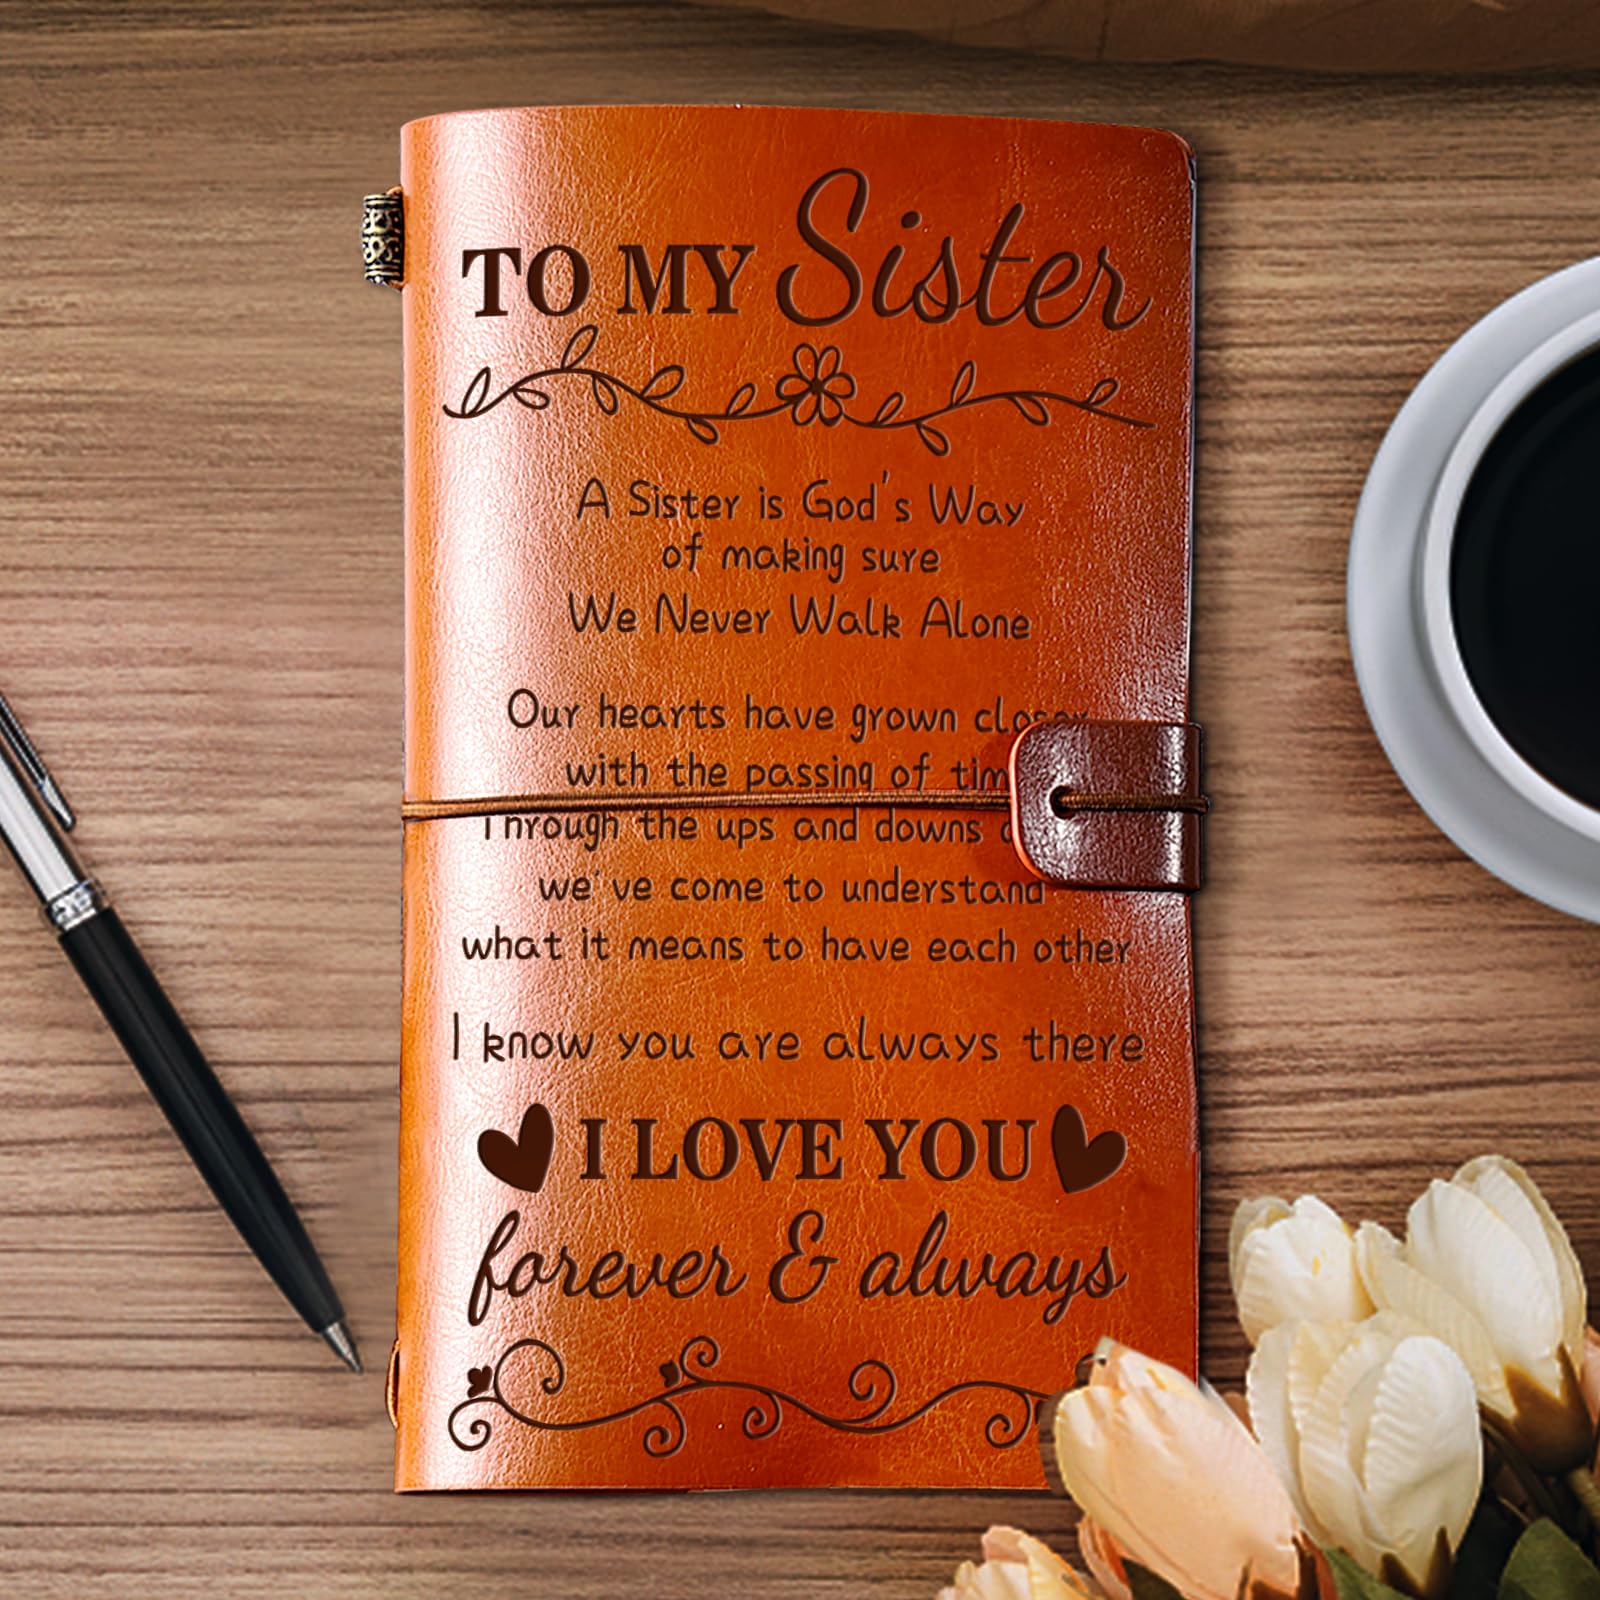 TO MY Sister
A Sister is God's Way
of making sure
We Never Walk Alone
Our hearts have grown closer
with the passing of tim
Through the ups and downs
we've come to understand
what it means to have each other
I know you are always there
I LOVE YOU
forever & always